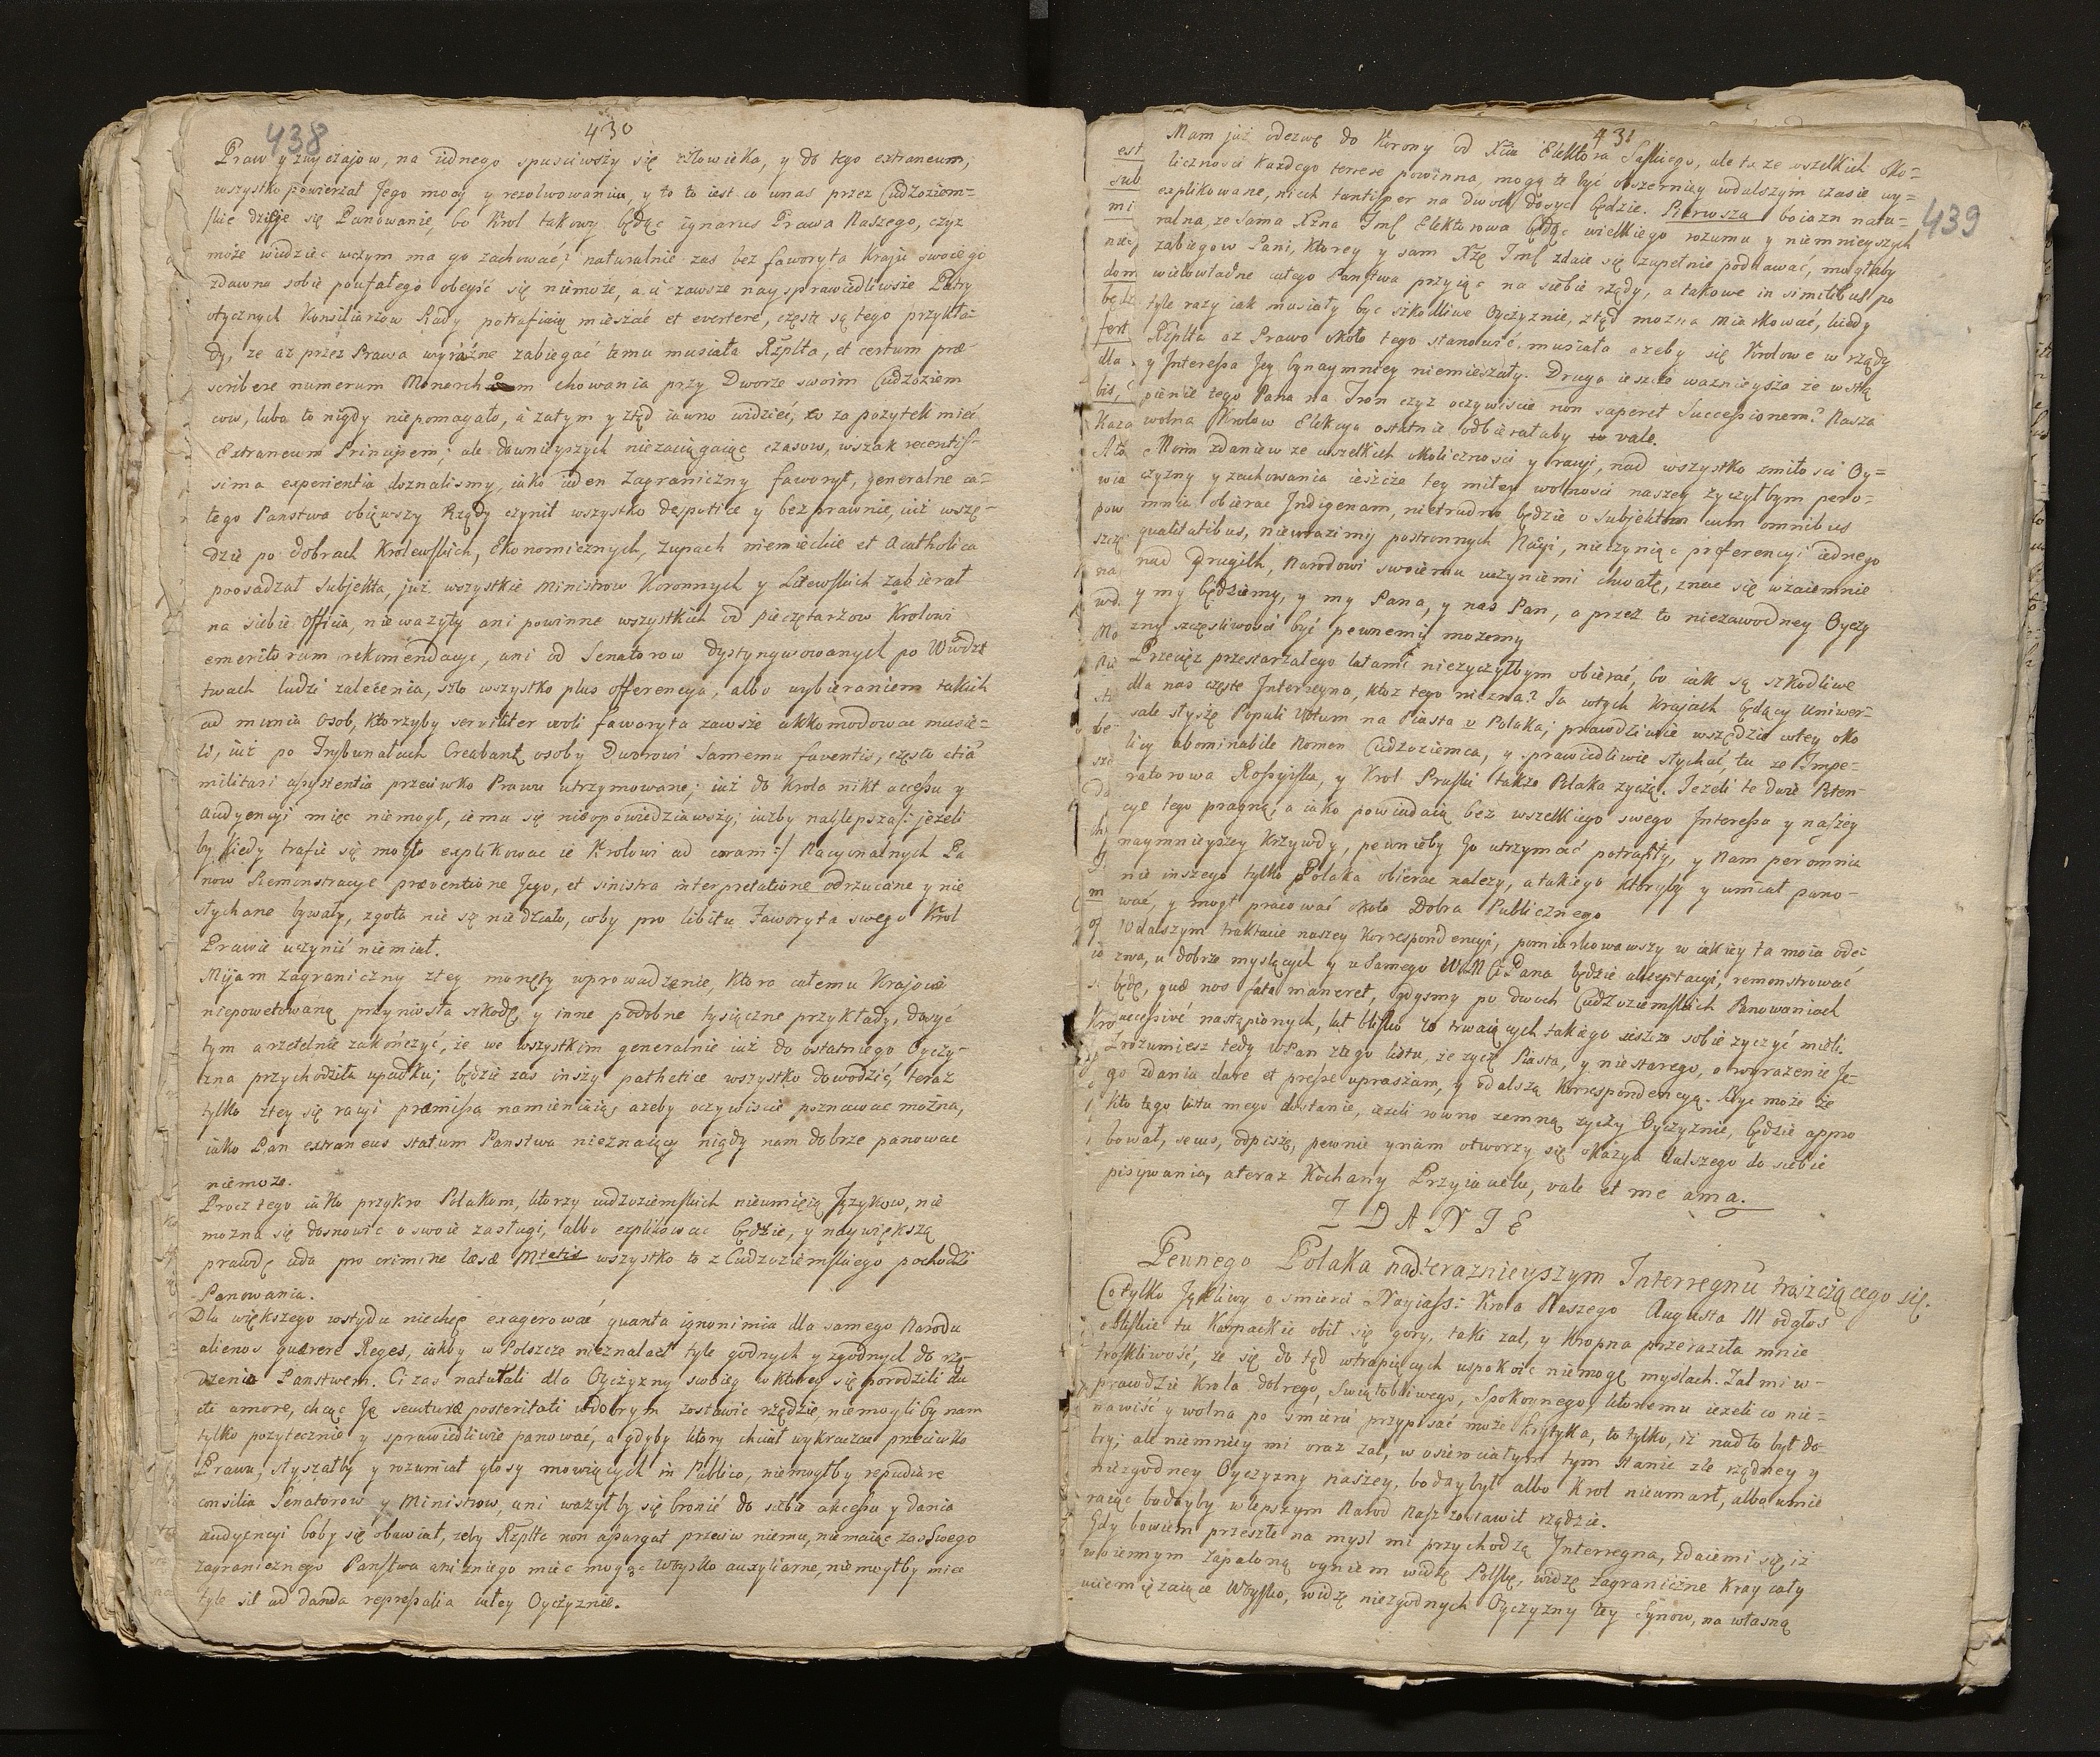 438
430
Praw y zwyczajow, na iednego spusciwszy się człowieka, y do tego extraneum,
wszystko powierzał Jego mocy y rezolwowaniu, y to to iest co unas przez Cudzoziem=
skie dzieje się Panowanie, bo Krol takowy będąc ignarus Prawa Naszego, czyż
może wiedzieć wczym ma go zachować? naturalnie zas bez faworyta Kraju swoiego
zdawna sobie poufałego obeyść się niemoże, a ci zawsze naysprawiedliwsze Patry
otycznych Konsiliarzow Rady potrafiaią mieszać et evertere, częste są tego przykła=
dy, ze aż przez Prawa wyraźne zabiegać temu musiała Rzplta, et certum præ=
scribere numerum Monarchom chowania przy Dworze swoim Cudzoziem
cow, lubo to nigdy niepomagało, a zatym y ztąd iawno widzieć, co za pozytek mieć
Extraneum Principem; ale dawnieyszych niezaciągaiąc czasow, wszak recentis=
sima experientia doznalismy, iako ieden Zagraniczny faworyt, generalne ca=
łego Panstwa obiąwszy Rządy czynił wszystko despotice y bezprawnie, iuż wszę=
dzie po dobrach Krolewskich, Ekonomicznych, Zupach niemieckie et Acatholica
poosadzał Subjekta, już wszystkie Ministrow Koronnych y Litewskich zabierał
na siebie Officia, nieważyły ani powinne wszystkich od Pieczętarzow Krolowi
emeritorum rekomendacye, ani od Senatorow dystyngwowanych po Wòdz
twach ludzi zalecenia, szło wszystko plus offerencya, albo wybieraniem takich
ad munia Osob, ktorzyby serviliter woli faworyta zawsze akkomodowac musie=
li, iuż po Trybunałach Creabant osoby Dworowi Samemu faventes, często etia
militari assystentia przeciwko Prawu utrzymowane; iuż do Krola nikt accessu y
Audyencyi mięc niemogł, iemu się nieopowiedziawszy; iużby naylepsza /: jeżeli
by kiedy trafic się mogło explikowac ie Krolowi ad coram :/ Racyonalnych Pa
now Remonstracye præventione Jego, et sinistra interpretatione odrzucane y nie
słychane bywały, zgoła nic się nie działo, coby pro libitu Faworyta swego Krol
Prawie uczynić niemiał.
Mijam zagraniczny złey monety wprowadzenie, Ktora całemu Krajowi
niepowetowaną przyniosła szkodę, y inne podobne tysiączne przykłady, dosyć
tym a rzetelnie zakończyć, że we wszystkim generalnie iuż do ostatniego Oyczy=
zna przychodziła upadku; będzie zas inszy pathetice wszystko dowodzić, teraz
tylko ztey się racyi præmissa namieniaią, azeby oczywiscie poznawac można,
iako Pan extraneus statum Panstwa nieznaiący nigdy nam dobrze panowac
niemoże.
Procz tego iako przykro Polakom, ktorzy cudzoziemskich nieumieią Języków, nie
można się dosnowic o swoie zasługi, albo explikowac będzie, y naywiększą
prawdę uda pro crimine læsæ Mtatis wszystko to z Cudzoziemskiego pochodzi
Panowania.
Dla większego wstydu niechcę exagerowac quanta ignonimia dla samego Narodu
alienos quærere Reges, iakby w Polszcze nieznalazł tyle godnych y zgodnych do rzą=
dzenia Panstwem. Ci zas natutali dla Oyczyzny swoiey w ktorey się porodzili du
cti amore, chcąc Ję secuturæ posteritati wdobrym zostawic rządzie, niemogliby nam
tylko pozytecznie y sprawiedliwie panowac, a gdyby ktory chciał wykraczac przeciwko
Prawu, słyszałby y rozumiał głosy mowiących in Publico, niemogłby repudiare
consilia Senatorow y Ministrow, ani wazyłby się bronić do siebie akcessu y dania
audyencyi boby się obawiał, zeby Rzplta non aspurgat przeciw niemu, niemaiąc zas swego
zagranicznego Panstwa ani zniego miec mogąc Woysko auxyliarne, niemogłby miec
tyle sił ad danda repressalia całey Oyczyznie.
431
439
Mam już odezwę do Korony od Xcia Elektora Saskiego, ale tu ze wszelkich oko=
licznosci każdego terrere powinna, mogą te być obszerniey wdalszym czasie wy=
explikowane, niech tantisper na dwoch dosyc będzie. Pierwsza boiazn natu=
ralna, ze sama Xżna Imść Elektorowa będąc wielkiego rozumu y niemnieyszych
zabiegow Pani, Ktorey y sam Xżę Imść zdaie się zupełnie poddawać, mogłaby
wielowładne całego Panstwa przyiąc na siebie rządy, a takowe in similibus po
tyle razy iak musiały byc szkodliwe Oyczyznie, ztąd można miarkować, kiedy
Rzplta aż Prawo około tego stanowić musiała azeby się Krolowe w rządy
y Interessa Jey bynaymniey niemieszały. Druga ieszcze ważnieysza że wstą
pienie tego Pana na Tron czyż oczywiscie non saperet Successionem? Nasza
wolna Krolow Elekcya ostatnie odbierałaby vale.
Moim zdaniem ze wszelkich okolicznosci y racyi, nad wszystko z miłosci Oy=
czyzny y zachowania ieszcze tey miłey wolnosci naszey życzyłbym pero=
mnia obierac Indigenam, nietrudno będzie o Subjektum cum omnibus
qualitatibus, nieurazimy postronnych Nacyi, nieczyniąc preferencyi iednego
nad drugich, Narodowi swoiemu uczyniemi chwałę, znac się wzaiemnie
y my będziemy, y my Pana, y nas Pan, a przez to niezawodney Oyczy
zny szczęśliwości być pewnemi możemy
Przecięż przestarzałego latami nieżyczyłbym obierać, bo iak są szkodliwe
dla nas częste Interregna, ktoż tego niezna? Ja wtych Krajach będący uniwer=
sale słyszę Populi Votum na Piasta v Polaka; prawdziwie wszędzie wtey oko
licy abominabile Nomen Cudzoziemca, y sprawiedliwie słychać, tu ze Impe=
ratorowa Rossyiska, y Krol Pruski także Polaka zyczą. Jeżeli te dwie Poten=
cye tego pragną, a iako powiadaią bez wszelkiego swego Interessu y naszey
naymnieyszey krzywdy, pewnieby go utrzymać potrafiły, y nam per omnia
nic inszego tylko Polaka obierac należy, a takiego ktoryby y umiał pano=
wać, y mogł pracować około Dobra Publicznego
Wdalszym traktacie naszey Korrespondencyi, pomiarkowawszy w iakiey ta moia ode=
zwa, u dobrze myslących y u Samego WMCi Pana będzie akceptacyi, remonstrować
będę, quæ nos fata maneret, gdysmy po dwoch Cudzoziemskich Panowaniach
successivé nastąpionych, lat blisko 70 trwaiących takiego ieszcze sobie zyczyć mieli.
Zrozumiesz tedy WPan ztego listu, że zyczę Piasta, y niestarego, o wyrażenie Je=
go zdania clare et presse upraszam, y o dalszą Korrespondencyą. Byc może że
kto tego listu mego dostanie, iezeli rowno zemną zyczy Oyczyznie, będzie appro
bował, secus, odpiszę, pewnie ynam otworzy się okazya dalszego do siebie
pisywania, a teraz Kochany Przyiacielu, vale et me ama.
ZDANIE
Pewnego Polaka nad teraznieyszym Interregnũ troszcząceego się.
Co tylko Jękliwy o smierci Nayiaśs: Krola Naszego Augusta III odgłos
o bliskie tu Karpackie obił się gory, taki zal, y okropna przeraziła mnie
troskliwość, że się do tąd wtrapiących uspokoic niemogę myslach. Zal mi w=
prawdzie Krola dobrego, Swiątobliwego, Spokoynego, ktoremu iezeli co nie=
nawiść y wolna po smierci przypisać może krytyka, to tylko, iż nadto był do
bry; ale niemniey mi oraz zal, w osierociałym tym stanie zle rządney y
niezgodney Oyczyzny naszey, bodaybył albo Krol nieumarł, albo umie
raiąc bodayby wlepszym Narod Nasz zostawił rządzie.
Gdy bowiem przeszłe na mysl mi przychodzą Interregna, zdaiemi się, iż
woiennym zapaloną ogniem widzę Polskę, widzę zagraniczne Kray cały
uciemiężaiące Woysko, widzę niezgodnych Oyczyzny tey Synow, na własną